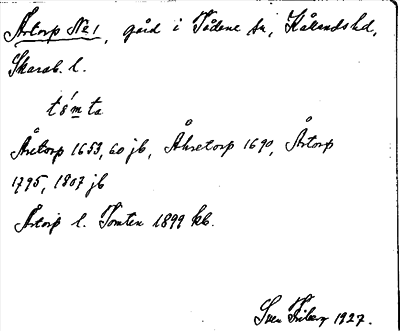 Årtorp No 1, gård i Tådene sn, Kållands hd,
Skarab. l.
tǒm̲ta
Åretorp 1653, 60 jb, Åhretorp 1690, Årtorp
1795, 1807 jb
Årtorp l. Tomten 1899 kb.
Sven Friberg 1927.